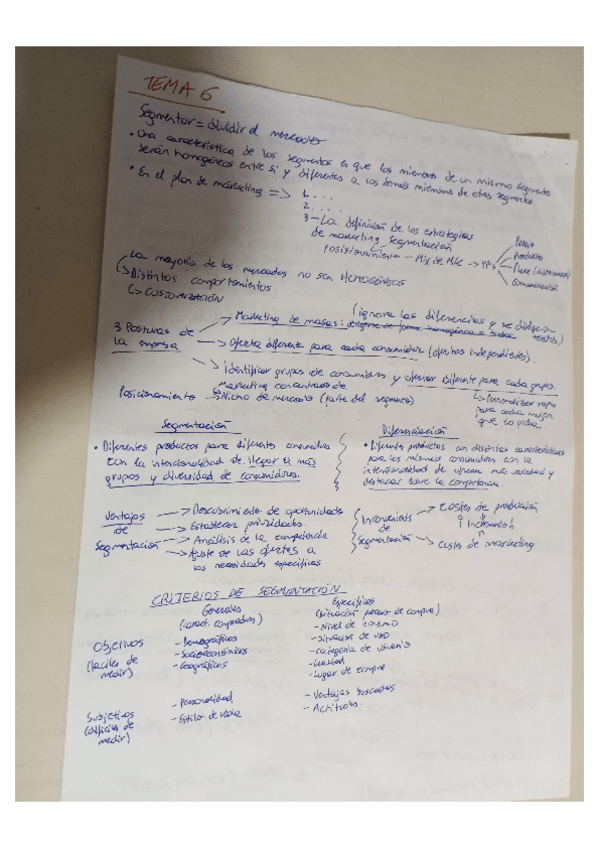 TEMA 6
Segmentar = dividir el mercado
• Una característica de los segmentos es que los miembros de un mismo segmento
serán homogéneos entre sí y diferentes a los demás miembros de otros segmentos
• En el plan de marketing => 1. ...
2. ...
3 - La definición de las estrategias
de marketing segmentación
posicionamiento - Mix de Mk - 4P's
Precio
Producto
Place
Comunicación
La mayoría de los mercados no son HOMOGÉNEOS
↳ Distintos comportamientos
↳ CUSTOMIZACIÓN
3 Posturas de
la empresa
→ Marketing de masas: dirigirse de forma homogénea a todos
(ignora las diferencias y se dirige a todos)
→ Oferta diferente para cada consumidor (ofertas independientes).
→ Identificar grupos de consumidores y ofrecer diferente para cada grupo.
marketing concentrado de
Posicionamiento → Nicho de mercado (parte del segmento)
↳ Personalizar
para cada mujer
que lo pida
Segmentación
• Diferentes productos para diferentes consumidores
con la intencionalidad de llegar a más
grupos y diversidad de consumidores.
Diferenciación
• Diferentes productos con distintas características
para los mismos consumidores con la
intencionalidad de ofrecer más variedad y
destacar sobre la competencia.
Ventajas
de
Segmentación
→ Descubrimiento de oportunidades
→ Establecer prioridades
→ Análisis de la competencia
→ Ajuste de las ofertas a
las necesidades específicas
Inconvenientes
de
Segmentación
→ Costes de producción
↑ Incremento
→ Costes de marketing
CRITERIOS DE SEGMENTACIÓN
Generales
(caract. compradores)
Específicos
(situación proceso de compra)
Objetivos
(fáciles de
medir)
- Demográficos
- Socioeconómicos
- Geográficos
- Nivel de consumo
- Situación de uso
- Categoría de usuario
- Lealtad
- Lugar de compra
Subjetivos
(difíciles de
medir)
- Personalidad
- Estilo de vida
- Ventajas buscadas
- Actitudes.